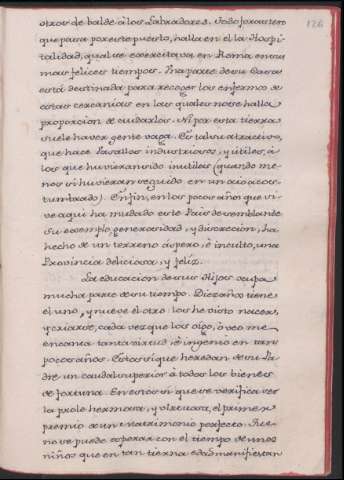 126
otros de balde à los Labradores. Todo forastero
que para por este puerto, halla en el la Hospi
talidad, qual se exercitava en Roma en sus
mas felices tiempos. Una parte de su Casa
está destinada para recoger los enfermos de
estas cercanias en las quales no se halla
proporcion de cuidarlos. Ni por esta tierra
suele haver gente vaga. Es tal su atractivo,
que hace Vasallos industriosos, y utiles, à
los que huvieran sido inutiles (quando me-
nos si huvieran seguido en un ocio acos-
tumbrado). En fin, en los pocos años que vi-
ve aqui ha mudado este Pais de semblante
su exemplo, generosidad, y discrecion, ha
hecho de un terreno áspero, è inculto, una
Provincia deliciosa, y feliz.
La educacion de sus Hijos ocupa
mucha parte de su tiempo. Diez años tiene
el uno, y nueve el otro. Los he visto nacer,
y criarse, cada vez que los oigo, ò veo me
encanta tanta virtud, è ingenio en tan
pocos años. Estos si que heredan de su Pa-
dre un caudal superior à todos los bienes
de fortuna. En estos si que se verifica ser
la prole hermosa, y virtuosa, el primer
premio de un matrimonio perfecto. Que
no se puede esperar con el tiempo de unos
niños que en tan tierna edad manifiestan